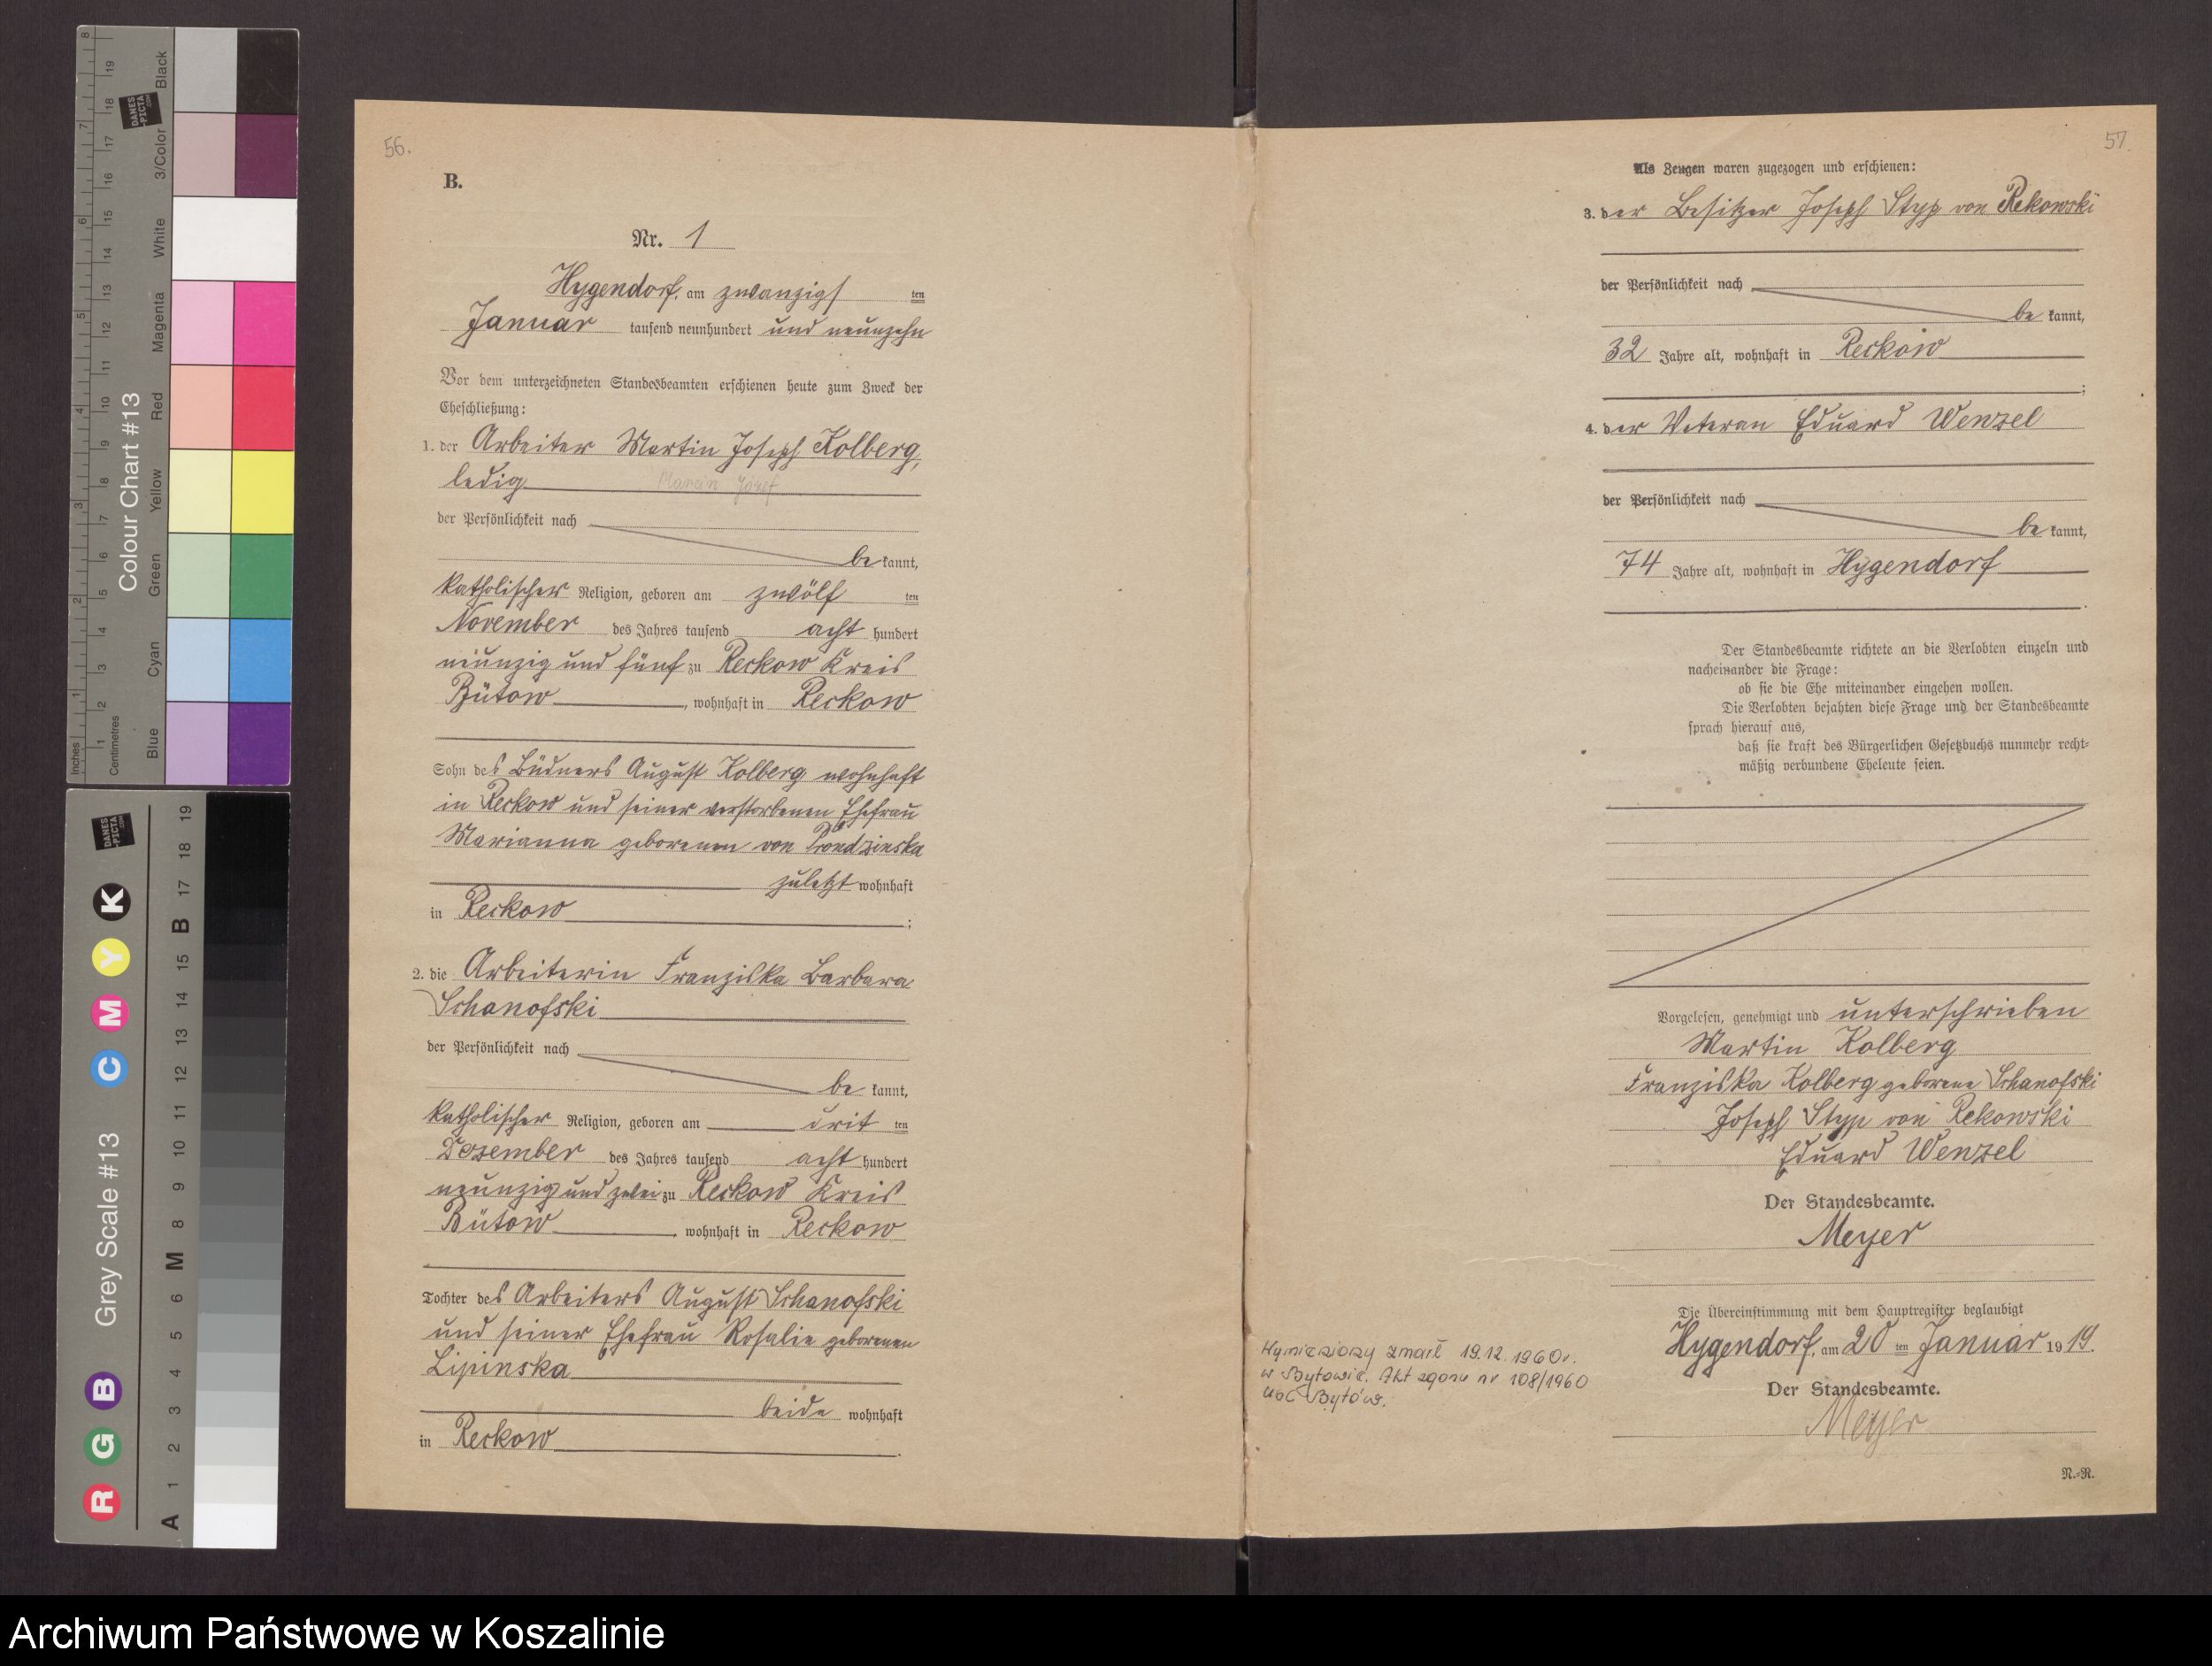 56.
B.
Nr. 1
Hygendorf, am zwanzigs ten
Januar tausend neunhundert und neunzehn
Vor dem unterzeichneten Standesbeamten erschienen heute zum Zweck der
Eheschließung:
1. der Arbeiter Martin Joseph Kolberg,
ledig Marcin Józef
der Persönlichkeit nach
be kannt,
katholischer Religion, geboren am zwölf ten
November des Jahres tausend acht hundert
neunzig und fünf zu Reckow Kreis
Bütow, wohnhaft in Reckow
Sohn des Büdners August Kolberg wohnhaft
in Reckow und seiner verstorbenen Ehefrau
Marianna geborenen von Prondzinska
zuletzt wohnhaft
in Reckow;
2. die Arbeiterin Franziska Barbara
Schanofski
der Persönlichkeit nach
be kannt,
katholischer Religion, geboren am drit ten
Dezember des Jahres tausend acht hundert
neunzig und zwei zu Reckow Kreis
Bütow, wohnhaft in Reckow
Tochter des Arbeiters August Schanofski
und seiner Ehefrau Rosalie geborenen
Lipinska
beide wohnhaft
in Reckow.
57.
Als Zeugen waren zugezogen und erschienen:
3. der Besitzer Joseph Styp von Rekowski
der Persönlichkeit nach
be kannt,
32 Jahre alt, wohnhaft in Reckow
;
4. der Veteran Eduard Wenzel
der Persönlichkeit nach
be kannt,
74 Jahre alt, wohnhaft in Hygendorf
.
Der Standesbeamte richtete an die Verlobten einzeln und
nacheinander die Frage:
ob sie die Ehe miteinander eingehen wollen.
Die Verlobten bejahten diese Frage und der Standesbeamte
sprach hierauf aus,
daß sie kraft des Bürgerlichen Gesetzbuchs nunmehr recht-
mäßig verbundene Eheleute seien.
Vorgelesen, genehmigt und unterschrieben
Martin Kolberg
Franziska Kolberg geborene Schanofski
Joseph Styp von Rekowski
Eduard Wenzel
Der Standesbeamte.
Meyer
Die Übereinstimmung mit dem Hauptregister beglaubigt
Hygendorf, am 20 ten Januar 19 19.
Der Standesbeamte.
Meyer
N.-R.
Wymieniony zmarł 19.12.1960r.
w Bytowie. Akt zgonu nr 108/1960
USC Bytów.
Inches
Centimetres
1 2 3 4 5 6 7 8 9 10 11 12 13 14 15 16 17 18 19
1 2 3 4 5 6 7 8
Colour Chart #13
Blue
Cyan
Green
Yellow
Red
Magenta
White
3/Color
Black
DANES
-PICTA
.COM
Grey Scale #13
R G B C M Y K
A 1 2 3 4 5 6 M 8 9 10 11 12 13 14 15 B 17 18 19
DANES
-PICTA
.COM
Archiwum Państwowe w Koszalinie